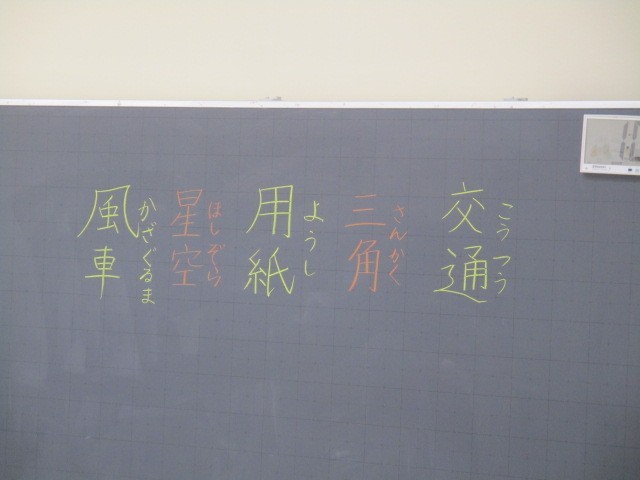 交通
こうつう
三角
さんかく
用紙
ようし
星空
ほしぞら
風車
かざぐるま